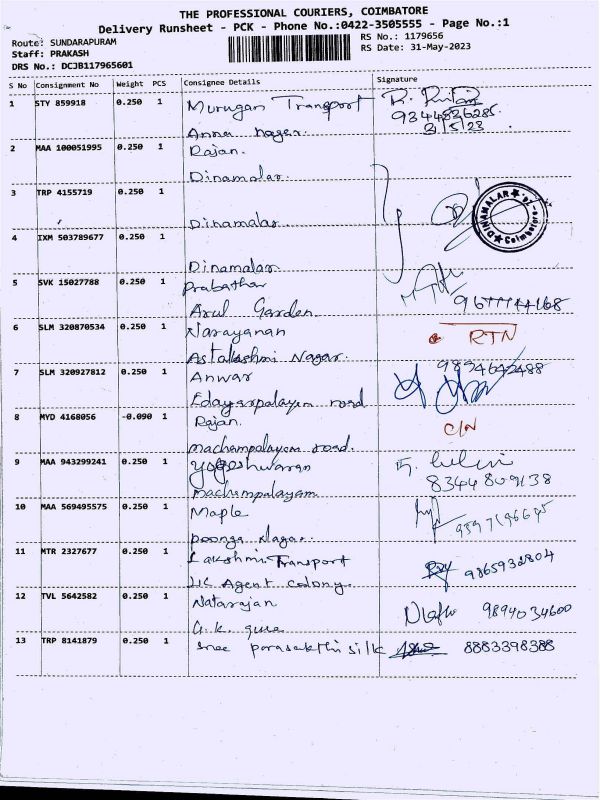 THE PROFESSIONAL COURIERS, COIMBATORE
Delivery Runsheet - PCK - Phone No.:0422-3505555 - Page No.:1
Route: SUNDARAPURAM
RS No.: 1179656
Staff: PRAKASH
RS Date: 31-May-2023
DRS No.: DCJB117965601
S No Consignment No Weight PCS Consignee Details Signature
1 STY 859918 0.250 1 Murugan Transport
9344836285
Anna nagar.
2 MAA 100051995 0.250 1 Rajan.
Dinamalar.
3 TRP 4155719 0.250 1
DINAMALAR
Coimbatore
Dinamalar
4 IXM 503789677 0.250 1
Dinamalar
5 SVK 15027788 0.250 1 Prabathar
Arul Garden
6 SLM 320870534 0.250 1 Narayanan RTN
Astalakshmi Nagar.
7 SLM 320927812 0.250 1 Anwar 9894642488
Edayarpalayam road
8 MYD 4168056 -0.090 1 Rajan. C/N
machampalayam road.
9 MAA 943299241 0.250 1 Yogeshwaran
8344809138
machampalayam
10 MAA 569495575 0.250 1 Maple
poonga Nagar.
11 MTR 2327677 0.250 1 Lakshmi Transport 9865932804
LIC Agent colony.
12 TVL 5642582 0.250 1 Natarajan 9894034600
G.K.
13 TRP 8141879 0.250 1 Sree parasakthi silk 8883398388